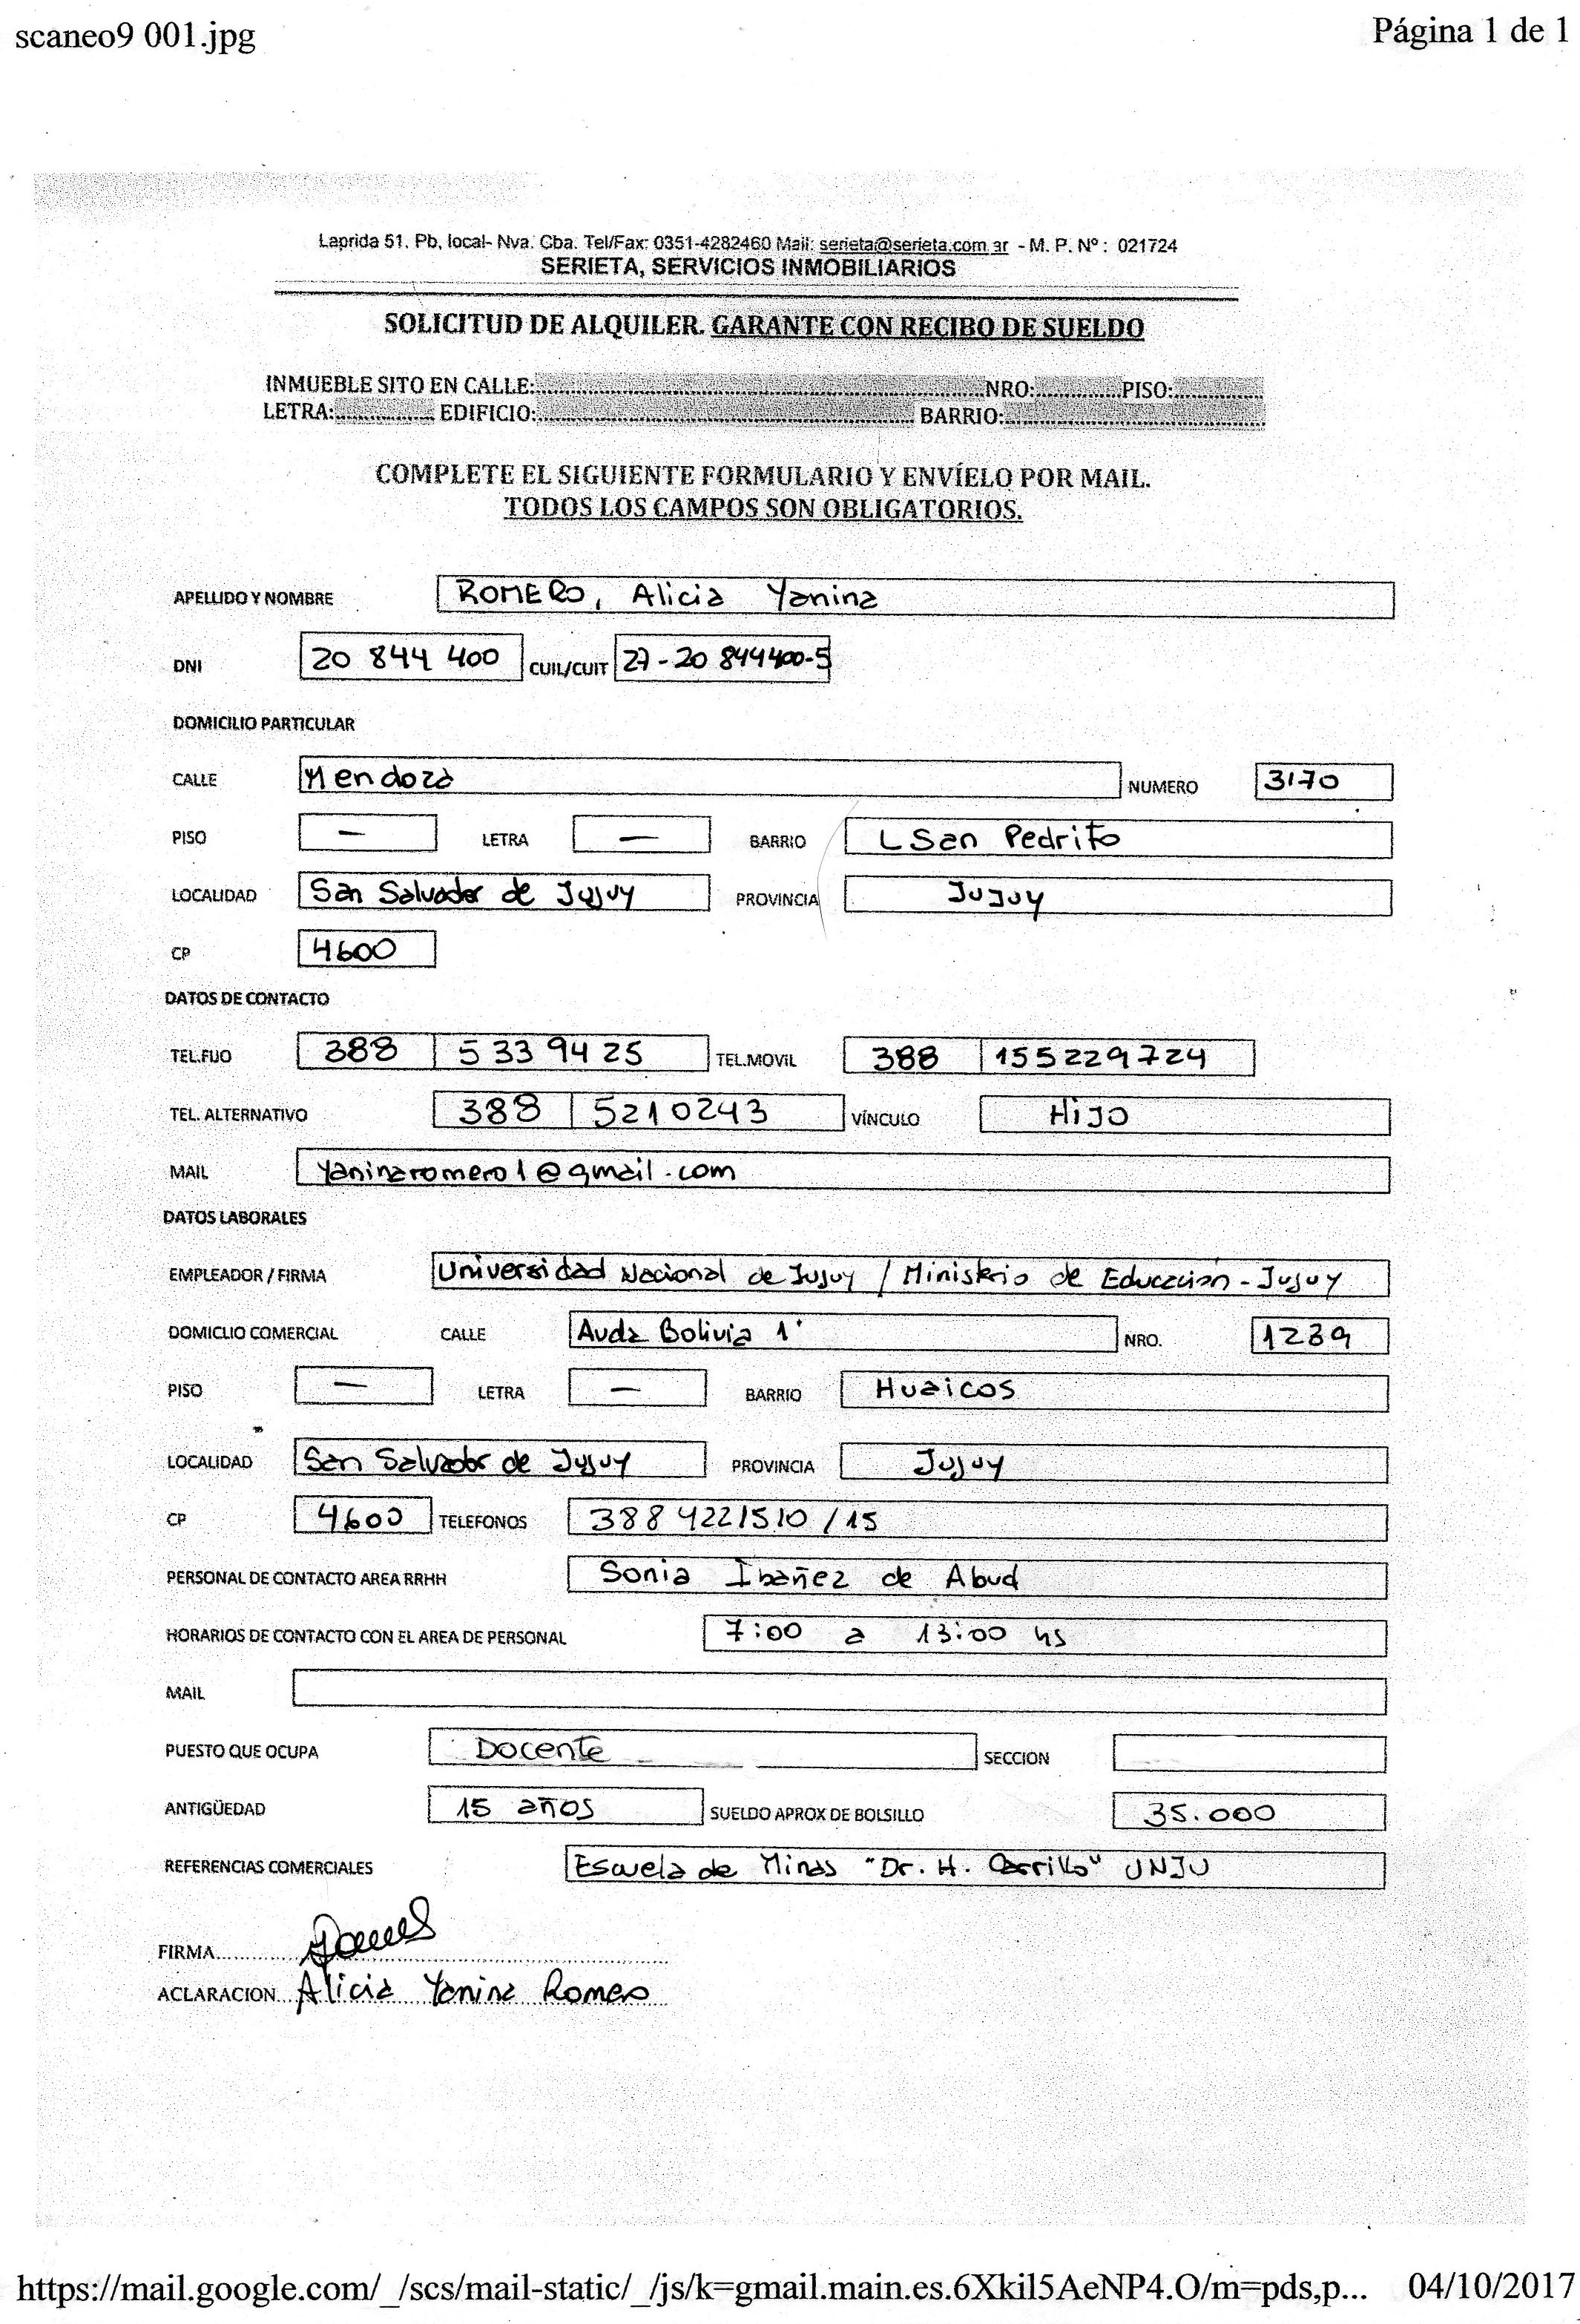 scaneo9 001.jpg Página 1 de 1
Laprida 51. Pb, local- Nva. Cba. Tel/Fax: 0351-4282460 Mail: serieta@serieta.com.ar - M. P. Nº : 021724
SERIETA, SERVICIOS INMOBILIARIOS
SOLICITUD DE ALQUILER. GARANTE CON RECIBO DE SUELDO
INMUEBLE SITO EN CALLE: NRO: PISO:
LETRA: EDIFICIO: BARRIO:
COMPLETE EL SIGUIENTE FORMULARIO Y ENVÍELO POR MAIL.
TODOS LOS CAMPOS SON OBLIGATORIOS.
APELLIDO Y NOMBRE ROMERO, Alicia Yanina
DNI 20 844 400 CUIL/CUIT 27-20 844400-5
DOMICILIO PARTICULAR
CALLE Mendoza NUMERO 3170
PISO — LETRA — BARRIO San Pedrito
LOCALIDAD San Salvador de Jujuy PROVINCIA JUJUY
CP 4600
DATOS DE CONTACTO
TEL.FIJO 388 5339425 TEL.MOVIL 388 155229724
TEL. ALTERNATIVO 388 5210243 VÍNCULO HIJO
MAIL yaninaromero1@gmail.com
DATOS LABORALES
EMPLEADOR / FIRMA Universidad Nacional de Jujuy / Ministerio de Educación - Jujuy
DOMICLIO COMERCIAL CALLE Avda Bolivia NRO. 1239
PISO — LETRA — BARRIO Huaicos
LOCALIDAD San Salvador de Jujuy PROVINCIA Jujuy
CP 4600 TELEFONOS 388 4221510 /15
PERSONAL DE CONTACTO AREA RRHH Sonia Ibañez de Abud
HORARIOS DE CONTACTO CON EL AREA DE PERSONAL 7:00 a 13:00 hs
MAIL
PUESTO QUE OCUPA Docente SECCION
ANTIGÜEDAD 15 años SUELDO APROX DE BOLSILLO 35.000
REFERENCIAS COMERCIALES Escuela de Minas "Dr. H. Carrillo" UNJU
FIRMA
ACLARACION Alicia Yanina Romero
https://mail.google.com/_/scs/mail-static/_/js/k=gmail.main.es.6Xkil5AeNP4.O/m=pds,p... 04/10/2017